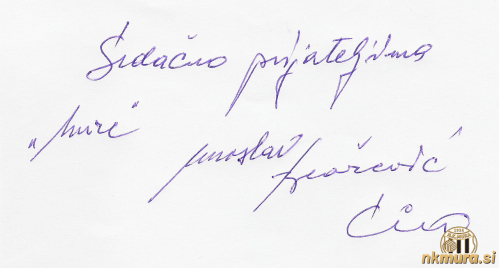 Srdačno prijateljima
„Mure"
Miroslav Blažević
Ćiro
nkmura.si